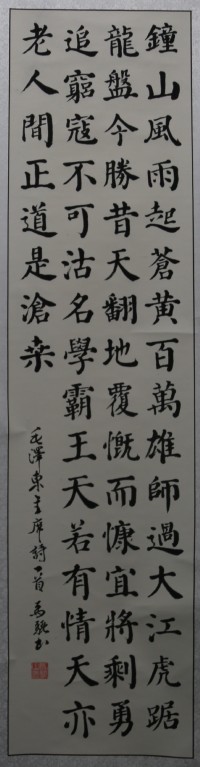 鐘山風雨起蒼黃百萬雄師過大江虎踞
龍盤今勝昔天翻地覆慨而慷宜將剩勇
追窮寇不可沽名學霸王天若有情天亦
老人間正道是滄桑
毛澤東主席詩一首 馬駿书